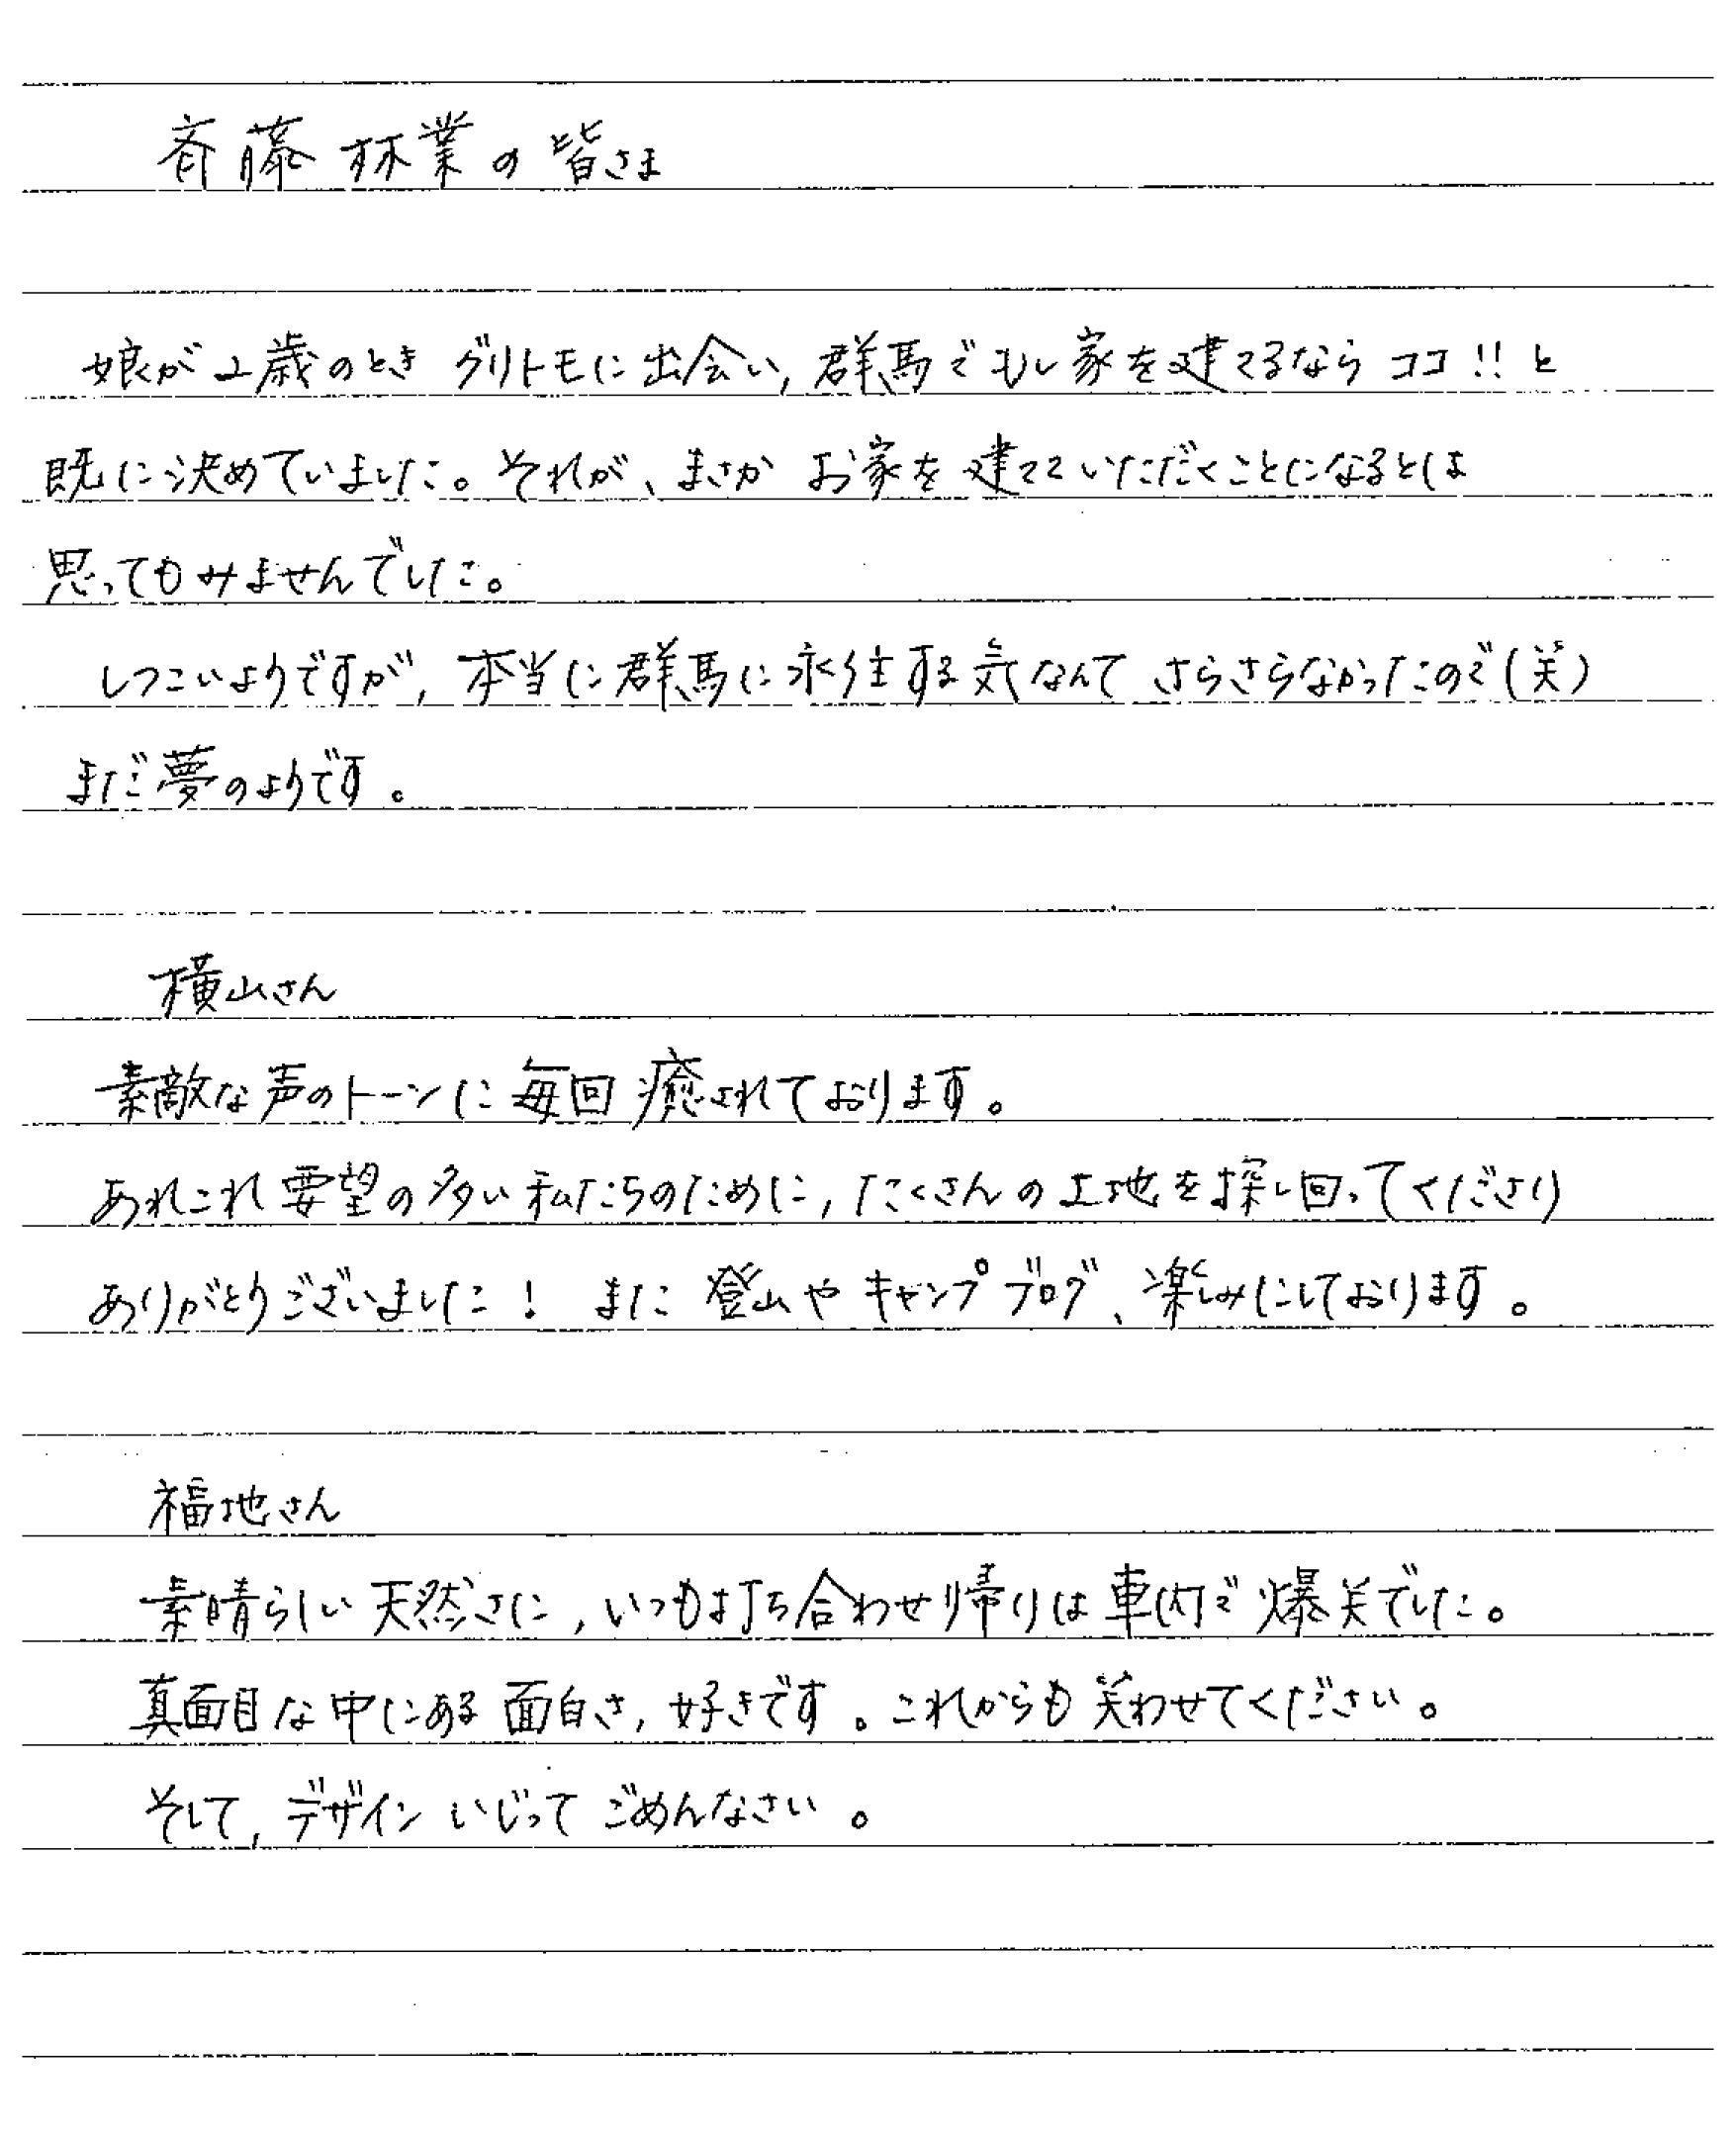 斉藤林業の皆さま
娘が2歳のとき グリトモに出会い, 群馬でもし家を建てるなら ココ!! と
既に決めていました。それが、まさか お家を建てていただくことになるとは
思ってもみませんでした。
しつこいようですが, 本当に群馬に永住する気なんて さらさらなかったので(笑)
まだ夢のようです。
横山さん
素敵な声のトーンに毎回癒されております。
あれこれ要望の多い私たちのために, たくさんの土地を探し回ってくださり
ありがとうございました! また 登山やキャンプブログ、楽しみにしております。
福地さん
素晴らしい天然さに, いつも打ち合わせ帰りは車内で爆笑でした。
真面目な中にある面白さ, 好きです。これからも笑わせてください。
そして, デザインいじって ごめんなさい。